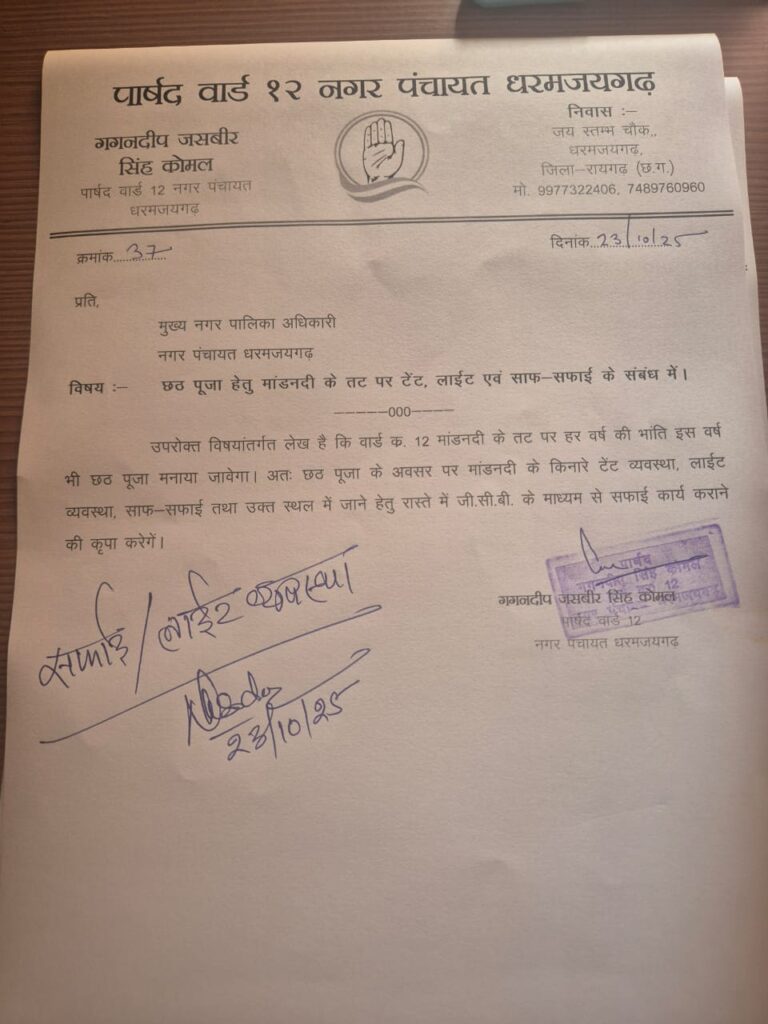 पार्षद वार्ड १२ नगर पंचायत धरमजयगढ़
गगनदीप जसबीर
सिंह कोमल
पार्षद वार्ड 12 नगर पंचायत
धरमजयगढ़
निवास :–
जय स्तम्भ चौक,,
धरमजयगढ़,
जिला–रायगढ़ (छ.ग.)
मो. 9977322406, 7489760960
क्रमांक.....37.....
दिनांक...23/10/25
प्रति,
मुख्य नगर पालिका अधिकारी
नगर पंचायत धरमजयगढ़
विषय :– छठ पूजा हेतु मांडनदी के तट पर टेंट, लाईट एवं साफ–सफाई के संबंध में।
-----000----
उपरोक्त विषयांतर्गत लेख है कि वार्ड क. 12 मांडनदी के तट पर हर वर्ष की भांति इस वर्ष
भी छठ पूजा मनाया जावेगा। अतः छठ पूजा के अवसर पर मांडनदी के किनारे टेंट व्यवस्था, लाईट
व्यवस्था, साफ–सफाई तथा उक्त स्थल में जाने हेतु रास्ते में जी.सी.बी. के माध्यम से सफाई कार्य कराने
की कृपा करेगें।
पार्षद
गगनदीप जसबीर सिंह कोमल
पार्षद वार्ड 12
नगर पंचायत धरमजयगढ़
सफाई/लाईट व्यवस्था
23/10/25